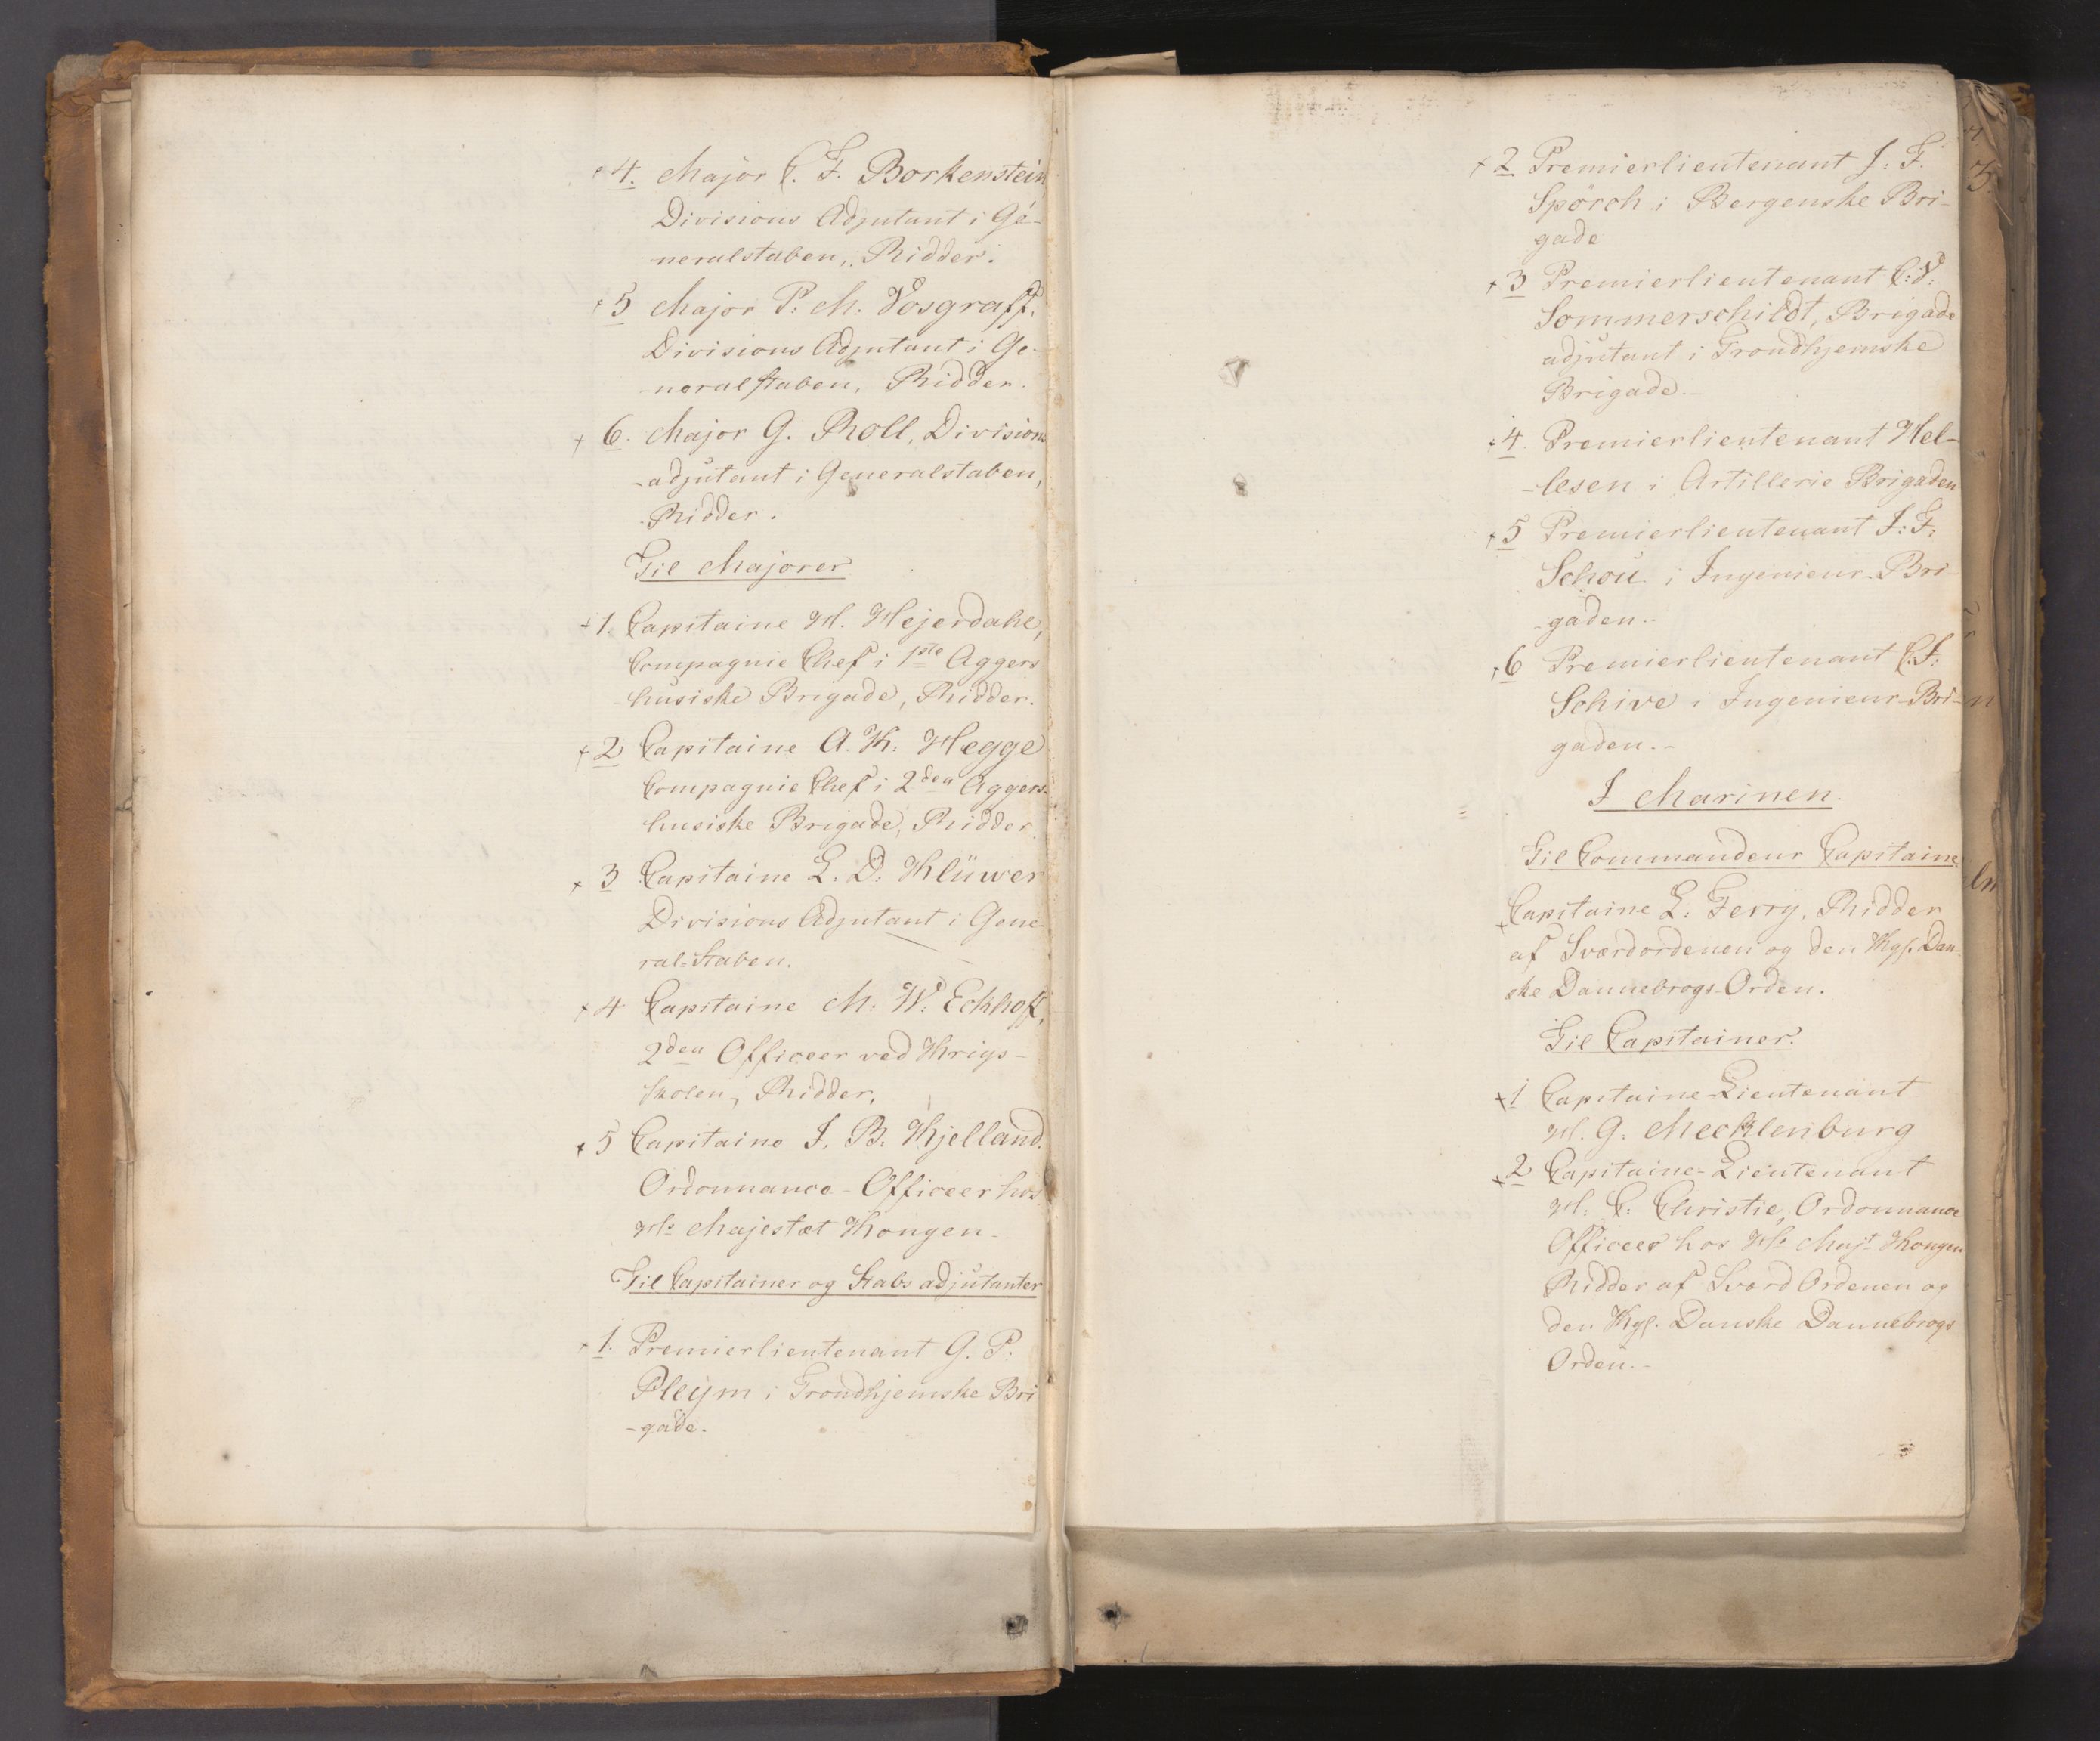 + 4. Major C. F. Borkenstein
Divisions Adjutant i Ge-
neralstaben, Ridder.
+ 5 Major P: M: Vosgraff,
Divisions Adjutant i Ge-
neralstaben, Ridder.
+ 6. Major G. Roll, Divisions
-adjutant i Generalstaben,
Ridder.
Til Majorer
+ 1. Capitaine H. Hejerdahl,
Compagnie Chef i 1ste Aggers
husiske Brigade, Ridder.
+ 2 Capitaine A. K: Hegge
Compagnie Chef i 2den Aggers-
husiske Brigade, Ridder
+ 3 Capitaine L. D: Klüwer
Divisions Adjutant i Gene-
ral=Staben.
+ 4 Capitaine M: W: Eckhoff,
2den Officeer ved Krigs-
skolen, Ridder,
+ 5 Capitaine J. B. Kjelland.
Ordonnance-Officeer hos
Hs Majestæt Kongen.
Til Capitainer og Stabsadjutanter
+ 1. Premierlieutenant G. P:
Pleÿm i Trondhjemske Bri
-gade.
+ 2 Premierlieutenant J: F.
Spörck i Bergenske Bri-
gade
+ 3 Premierlieutenant C:V:
Sommerschildt, Brigade
adjutant i Trondhjemske
Brigade.-
+ 4. Premierlieutenant Hel-
-lesen i Artillerie Brigaden
+ 5 Premierlieutenant J: F:
Schou i Ingenieur-Bri-
-gaden..
+ 6 Premierlieutenant C. J:
Schive i Ingenieur-Bri-
gaden.-
I Marinen.
Til Commandeur Capitaine.
+ Capitaine L: Ferry, Ridder
af Sværdordenen og den Kgl. Dan-
ske Dannebrogs-Orden.
Til Capitainer.
+ 1 Capitaine-Lieutenant
H. G: Mecklenburg
+ 2 Capitaine-Lieutenant
H: C: Christie, Ordonnance
Officeer hos Hs Majt Kongen
Ridder af Sværd Ordenen og
den Kgl. Danske Dannebrogs
Orden.-